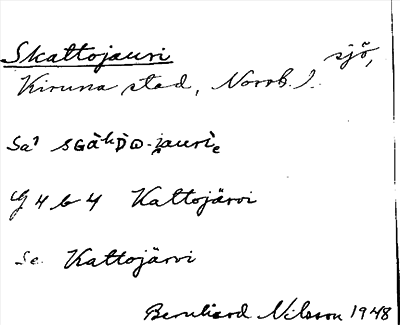 Skattojauri sjö,
Kiruna stad, Norrb. l.
Sa¹
G 4 b 4 Kattojärvi
Se Kattojärvi
Bernhard Nilsson 1948